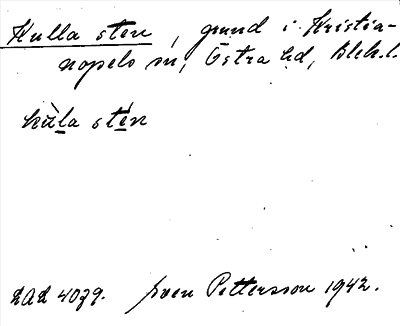 Kulla sten, grund i Kristia-
nopels sn, Östra hd, Blek. l.
kùla stén
DAL 4079. Sven Pettersson 1942.